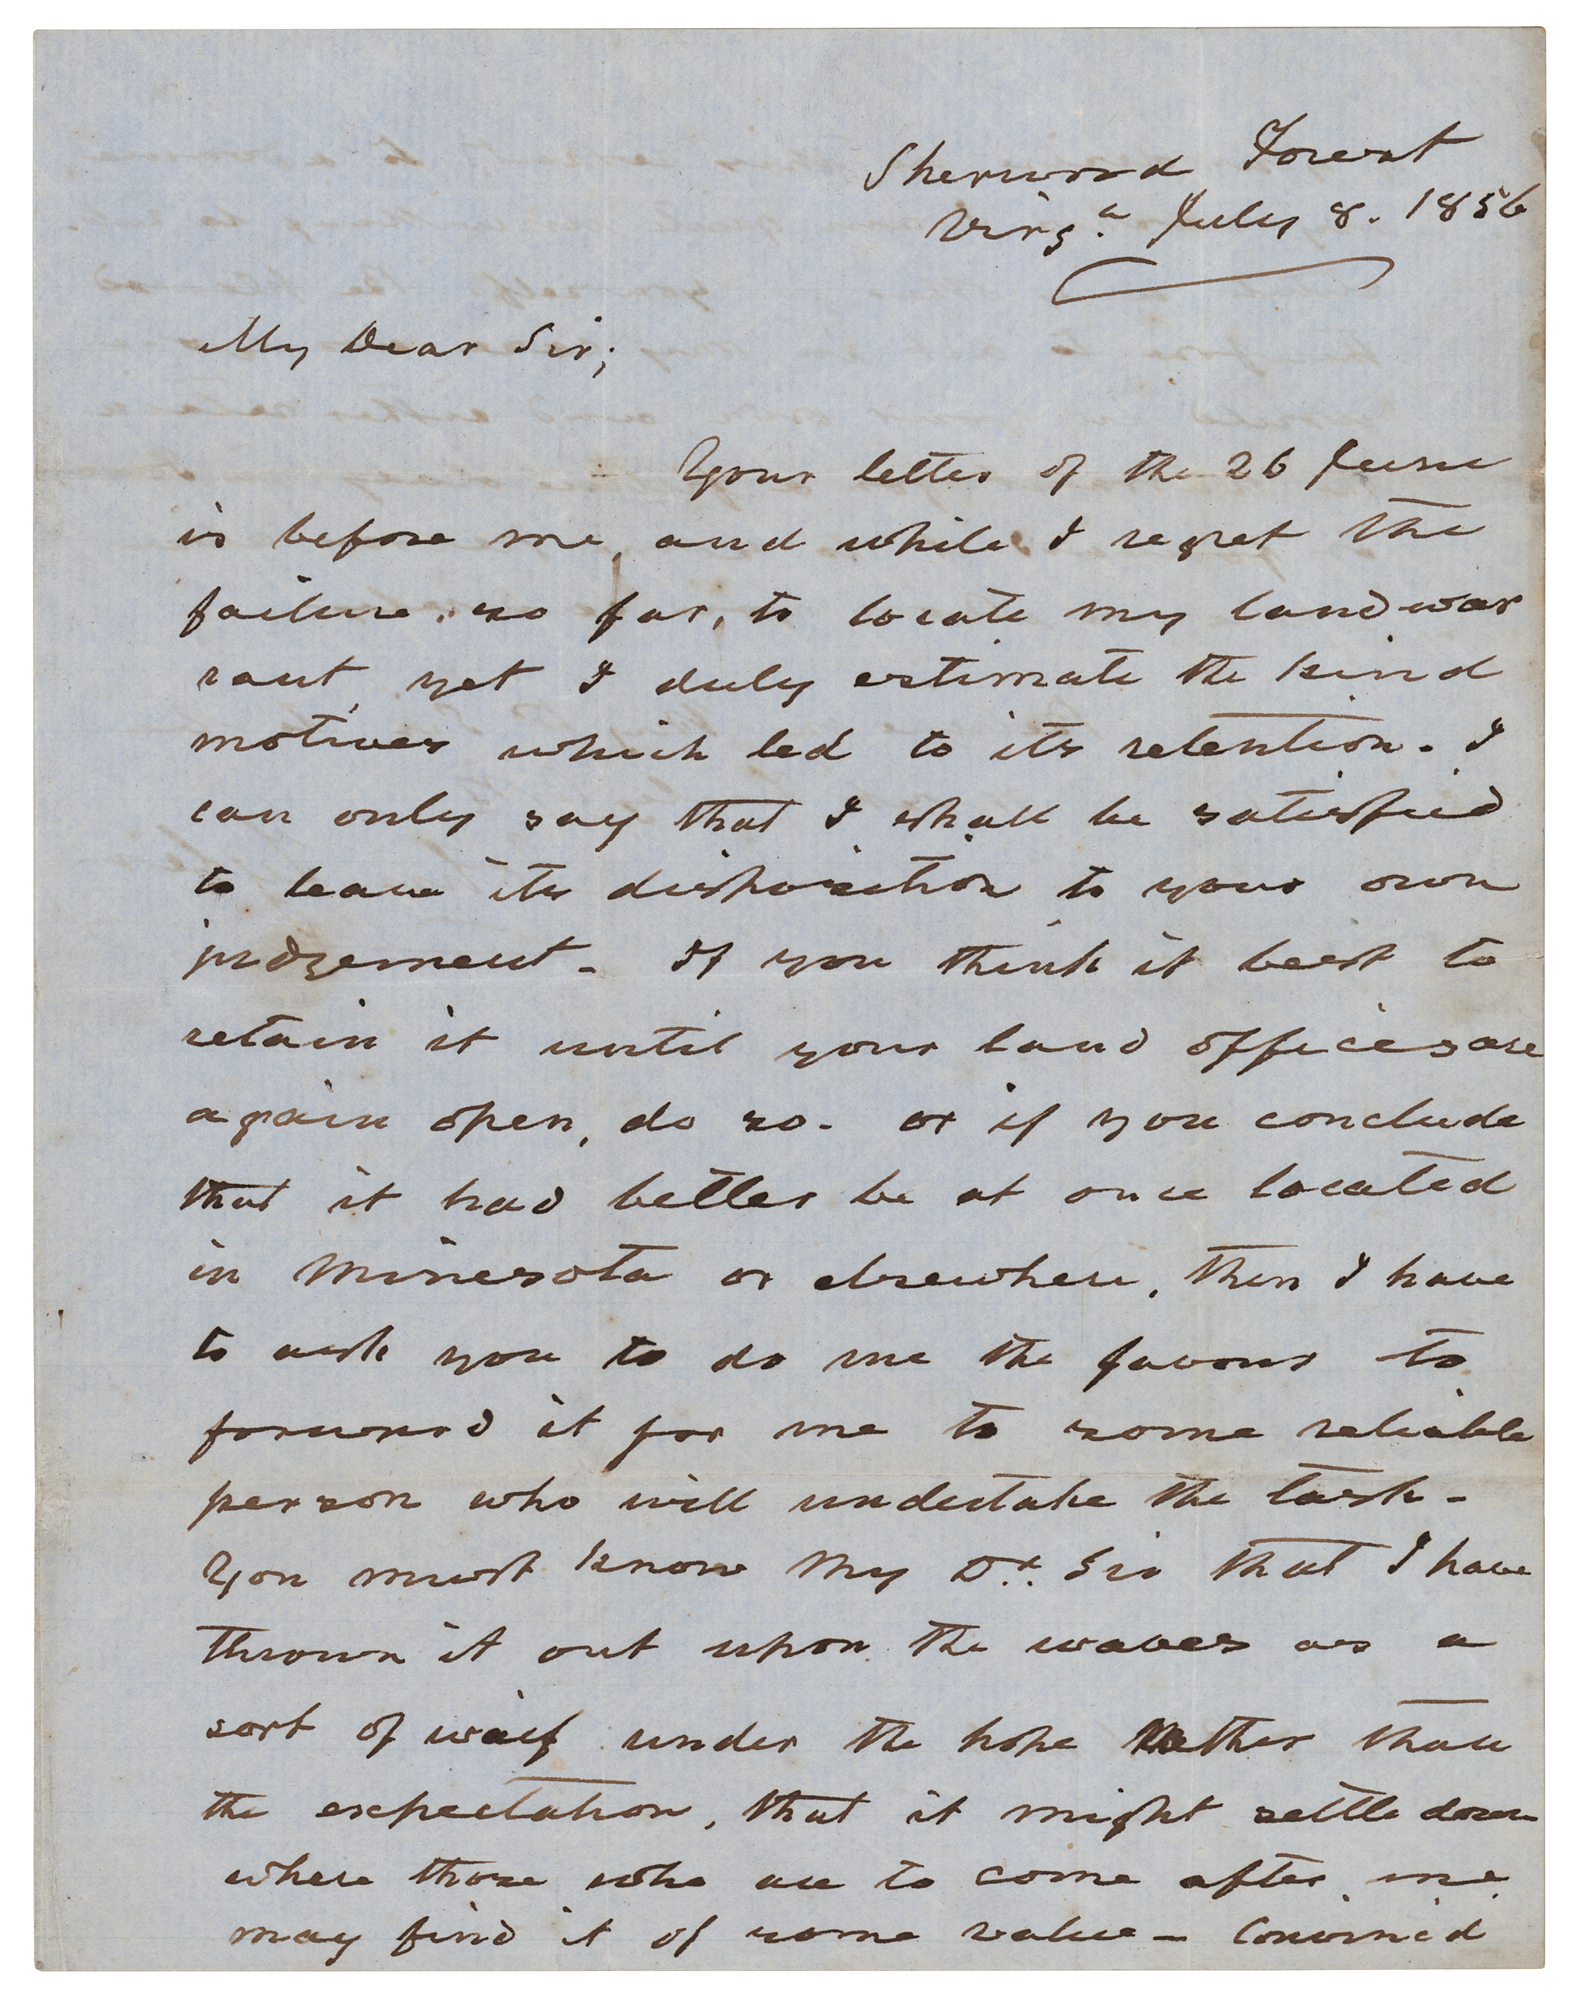 Sherwood Forest
Virga. July 8. 1856
My Dear Sir;
Your letter of the 26 June
is before me, and while I regret the
failure, so far, to locate my land war
rant, yet I duly estimate the kind
motives which led to its retention. I
can only say that I shall be satisfied
to leave its disposition to your own
judgement. If you think it best to
retain it until your land offices are
again open, do so. or if you conclude
that it had better be at once located
in Minesota or elsewhere, then I have
to ask you to do me the favour to
forward it for me to some reliable
person who will undertake the task.
You must know My Dr. Sir that I have
thrown it out upon the waves as a
sort of waif under the hope rather than
the expectation, that it might settle down
where those who are to come after me,
may find it of some value - Convinc'd